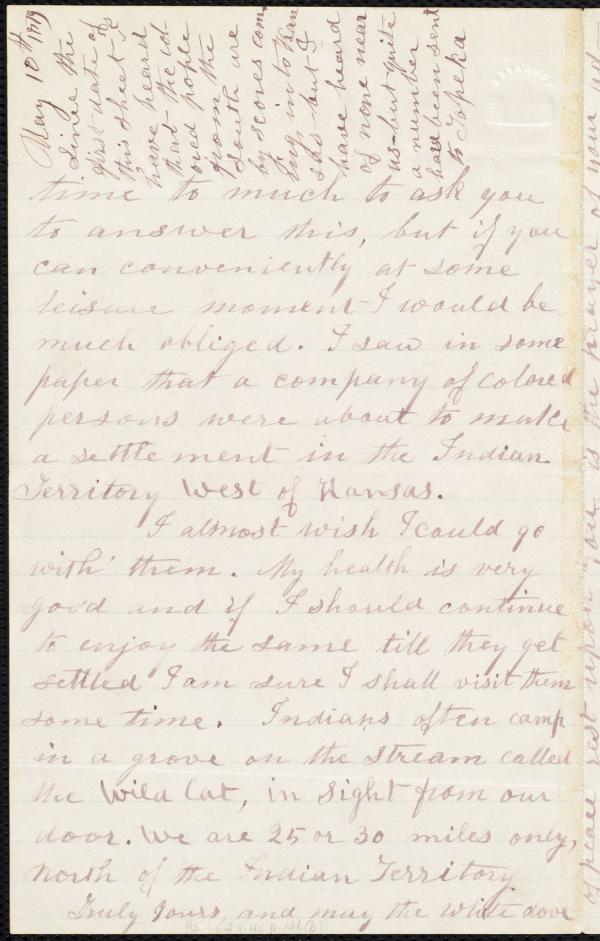 May 10th 1879
Since the
first date of
this sheet I
have heard
that the col
ored pople
from the
South are
by scores com
ing into Kan
sas but I
have heard
of none near
us- but quite
a number
have been sent
to Topeka
time to much to ask you
to answer this, but if you
can conveniently at some
leisure moment I would be
much obliged. I saw in some
paper that a company of Colored
persons were about to make
a settlement in the Indian
Territory West of Kansas.
I almost wish I could go
with them. My health is very
good and if I should continue
to enjoy the same till they get
settled I am sure I shall visit them
some time. Indians often camp
in a grove on the stream called
the Wild Cat, in Sight from our
door. We are 25 or 30 miles only,
north of the Indian Territory
Truly Yours, and may the white dove
of peace rest upon you is the prayer of your ad-